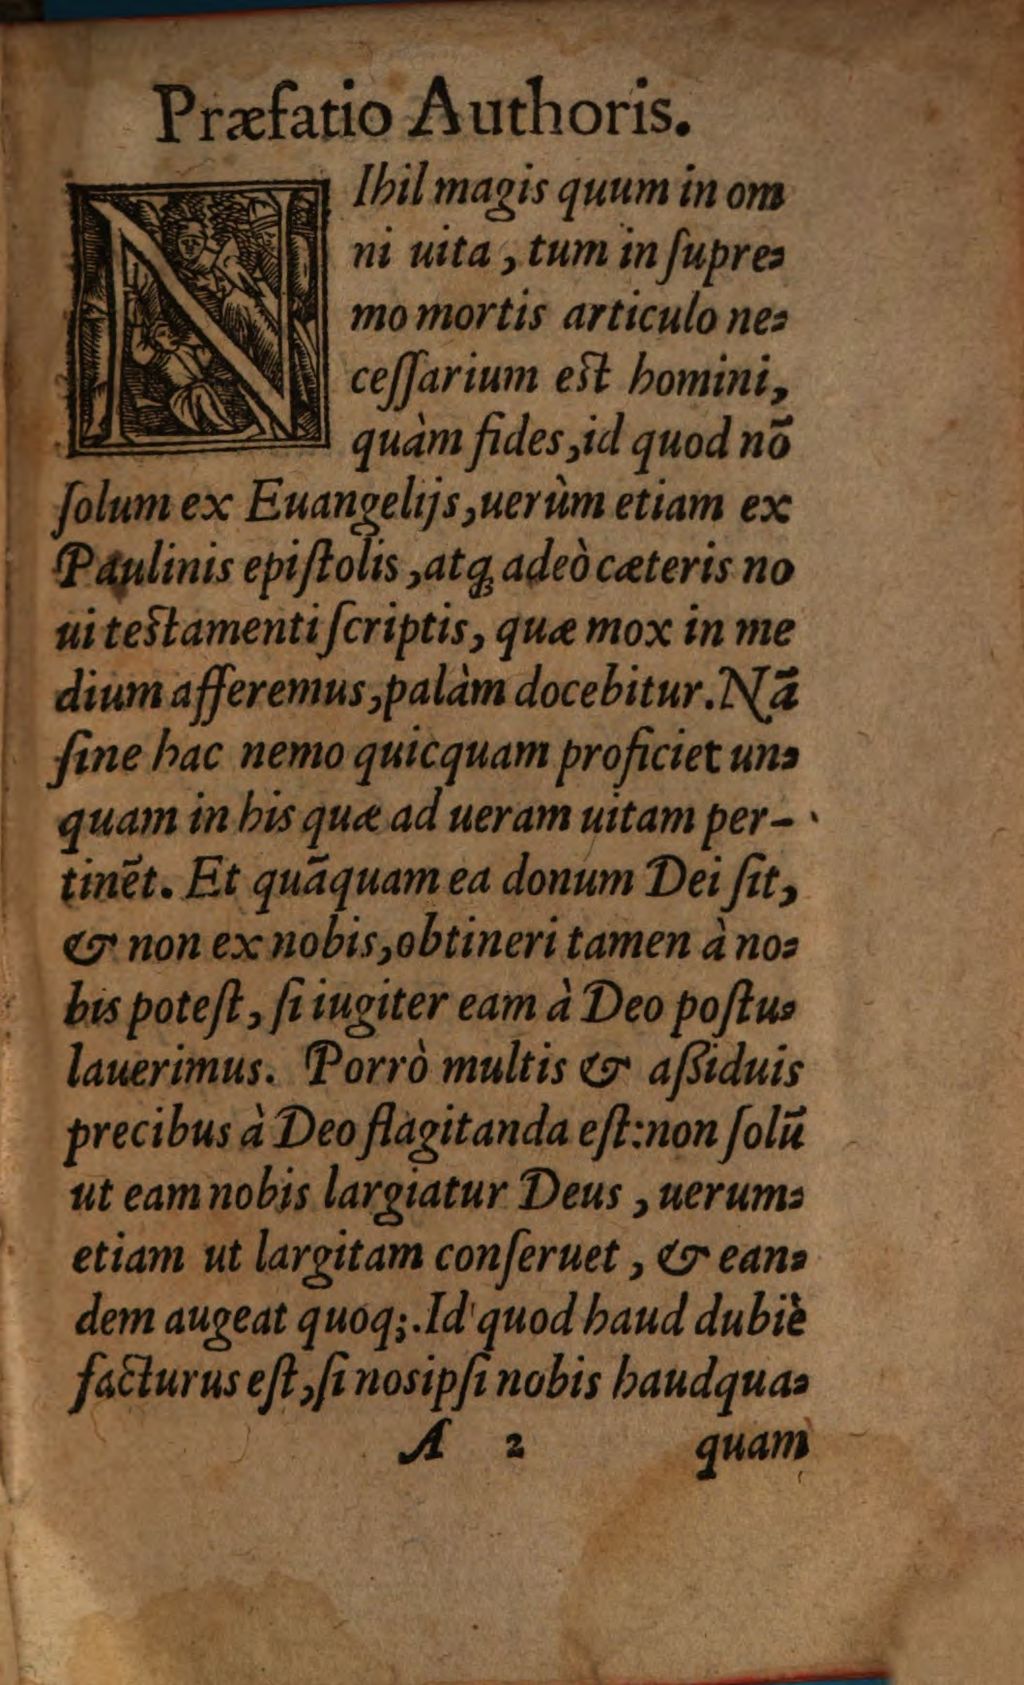 Præfatio Authoris.
NIhil magis quum in om
ni uita, tum in ſupre⸗
mo mortis articulo ne⸗
ceſſarium eſt homini,
quàm fides, id quod nõ
ſolum ex Euangelijs, uerùm etiam ex
Paulinis epiſtolis, atqꝫ adeò cæteris no
ui teſtamenti ſcriptis, quæ mox in me
dium afferemus, palàm docebitur. Nã
ſine hac nemo quicquam proficiet un⸗
quam in his quæ ad ueram uitam per-
tinẽt. Et quãquam ea donum Dei ſit,
& non ex nobis, obtineri tamen à no⸗
bis poteſt, ſi iugiter eam à Deo poſtu⸗
lauerimus. Porrò multis & aßiduis
precibus à Deo flagitanda eſt: non ſolũ
ut eam nobis largiatur Deus, uerum⸗
etiam ut largitam conſeruet, & ean⸗
dem augeat quoq;. Id quod haud dubiè
facturus eſt, ſi nosipſi nobis haudqua⸗
A 2 quam